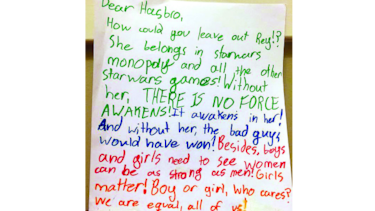 Dear Hasbro,
How could you leave out Rey!?
She belongs in starwars
monopoly and all the other
starwars games! Without
her, THERE IS NO FORCE
AWAKENS! It awakens in her!
And without her, the bad guys
would have won! Besides, boys
and girls need to see women
can be as strong as men! Girls
matter! Boy or girl, who cares?
We are equal, all of us!